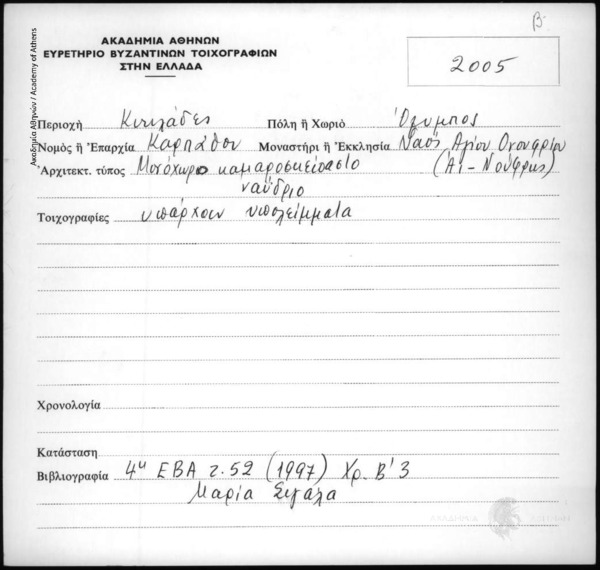 Β
ΑΚΑΔΗΜΙΑ ΑΘΗΝΩΝ
ΕΥΡΕΤΗΡΙΟ ΒΥΖΑΝΤΙΝΩΝ ΤΟΙΧΟΓΡΑΦΙΩΝ
ΣΤΗΝ ΕΛΛΑΔΑ
2005
Ακαδημία Αθηνών / Academy of Athens
Περιοχὴ Κυκλάδες Πόλη ἢ Χωριὸ Ὄλυμπος
Νομὸς ἢ Ἐπαρχία Καρπάθου Μοναστήρι ἢ Ἐκκλησία Ναός Αγίου Ονουφρίου
Ἀρχιτεκτ. τύπος Μονόχωρο καμαροσκέπαστο (Αϊ-Νούφρης)
ναΰδριο
Τοιχογραφίες υπάρχουν υπολείμματα
Χρονολογία
Κατάσταση
Βιβλιογραφία 4η ΕΒΑ τ.52 (1997) Χρ. Β' 3
Μαρία Σιγάλα
ΑΚΑΔΗΜΙΑ ΑΘΗΝΩΝ